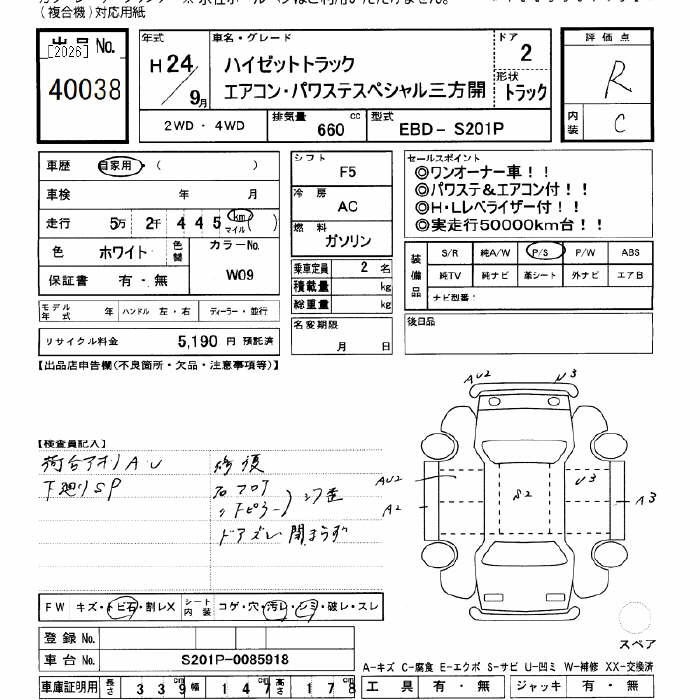 (複合機)対応用紙
出品 No.
[2026]
40038
年式
H24/9月
車名・グレード
ハイゼットトラック
エアコン・パワステスペシャル三方開
ドア
2
形状
トラック
2WD ・ 4WD
排気量 660 cc
型式 EBD- S201P
評価点
R
内装
C
車歴 自家用・( )
車検 年 月
走行 5万 2千 4 4 5 km マイル ( )
色 ホワイト 色替
カラーNo.
W09
保証書 有 ・ 無
モデル年式 年 ハンドル 左・右 ディーラー・並行
リサイクル料金 5,190 円 預託済
シフト
F5
冷房
AC
燃料
ガソリン
乗車定員 2 名
積載量 kg
総重量 kg
名変期限
月 日
セールスポイント
◎ワンオーナー車!!
◎パワステ&エアコン付!!
◎H・Lレベライザー付!!
◎実走行50000km台!!
装備品
S/R 純A/W P/S P/W ABS
純TV 純ナビ 革シート 外ナビ エアB
ナビ型番:
後日品
【出品店申告欄(不良箇所・欠品・注意事項等)】
【検査員記入】
荷台アオリAU
下廻りSP
修復
フロア
ピラー
ドアズレ 閉まらず
AU2
U3
AU2
A2
S2
U3
A3
スペア
FW キズ・トビ石・割レX シート内装 コゲ・穴・汚レ・シミ・破レ・スレ
登録 No.
車台 No. S201P-0085918
A-キズ C-腐食 E-エクボ S-サビ U-凹ミ W-補修 XX-交換済
車庫証明用 長さ 3 3 9 cm 幅 1 4 7 cm 高さ 1 7 8 cm
工具 有 ・ 無 ジャッキ 有 ・ 無